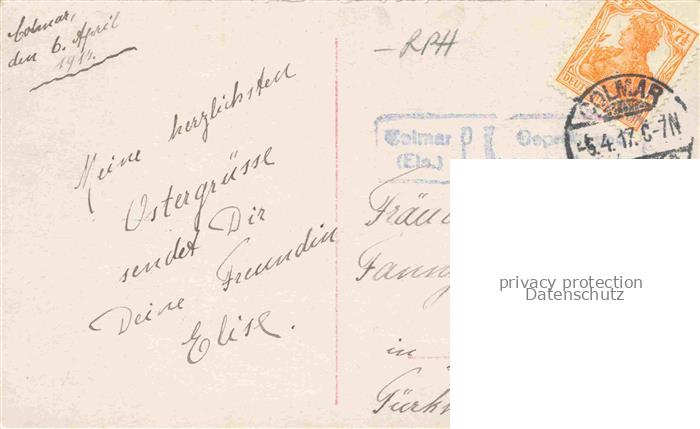 Colmar,
den 6. April
1917.
Meine herzlichsten
Ostergrüsse
sendet Dir
Deine Freundin
Elise.
RPH
7½
COLMAR
-6.4.17.6-7N
Colmar
(Els.)
Fräu
Fanny
in
Türk
privacy protection
Datenschutz